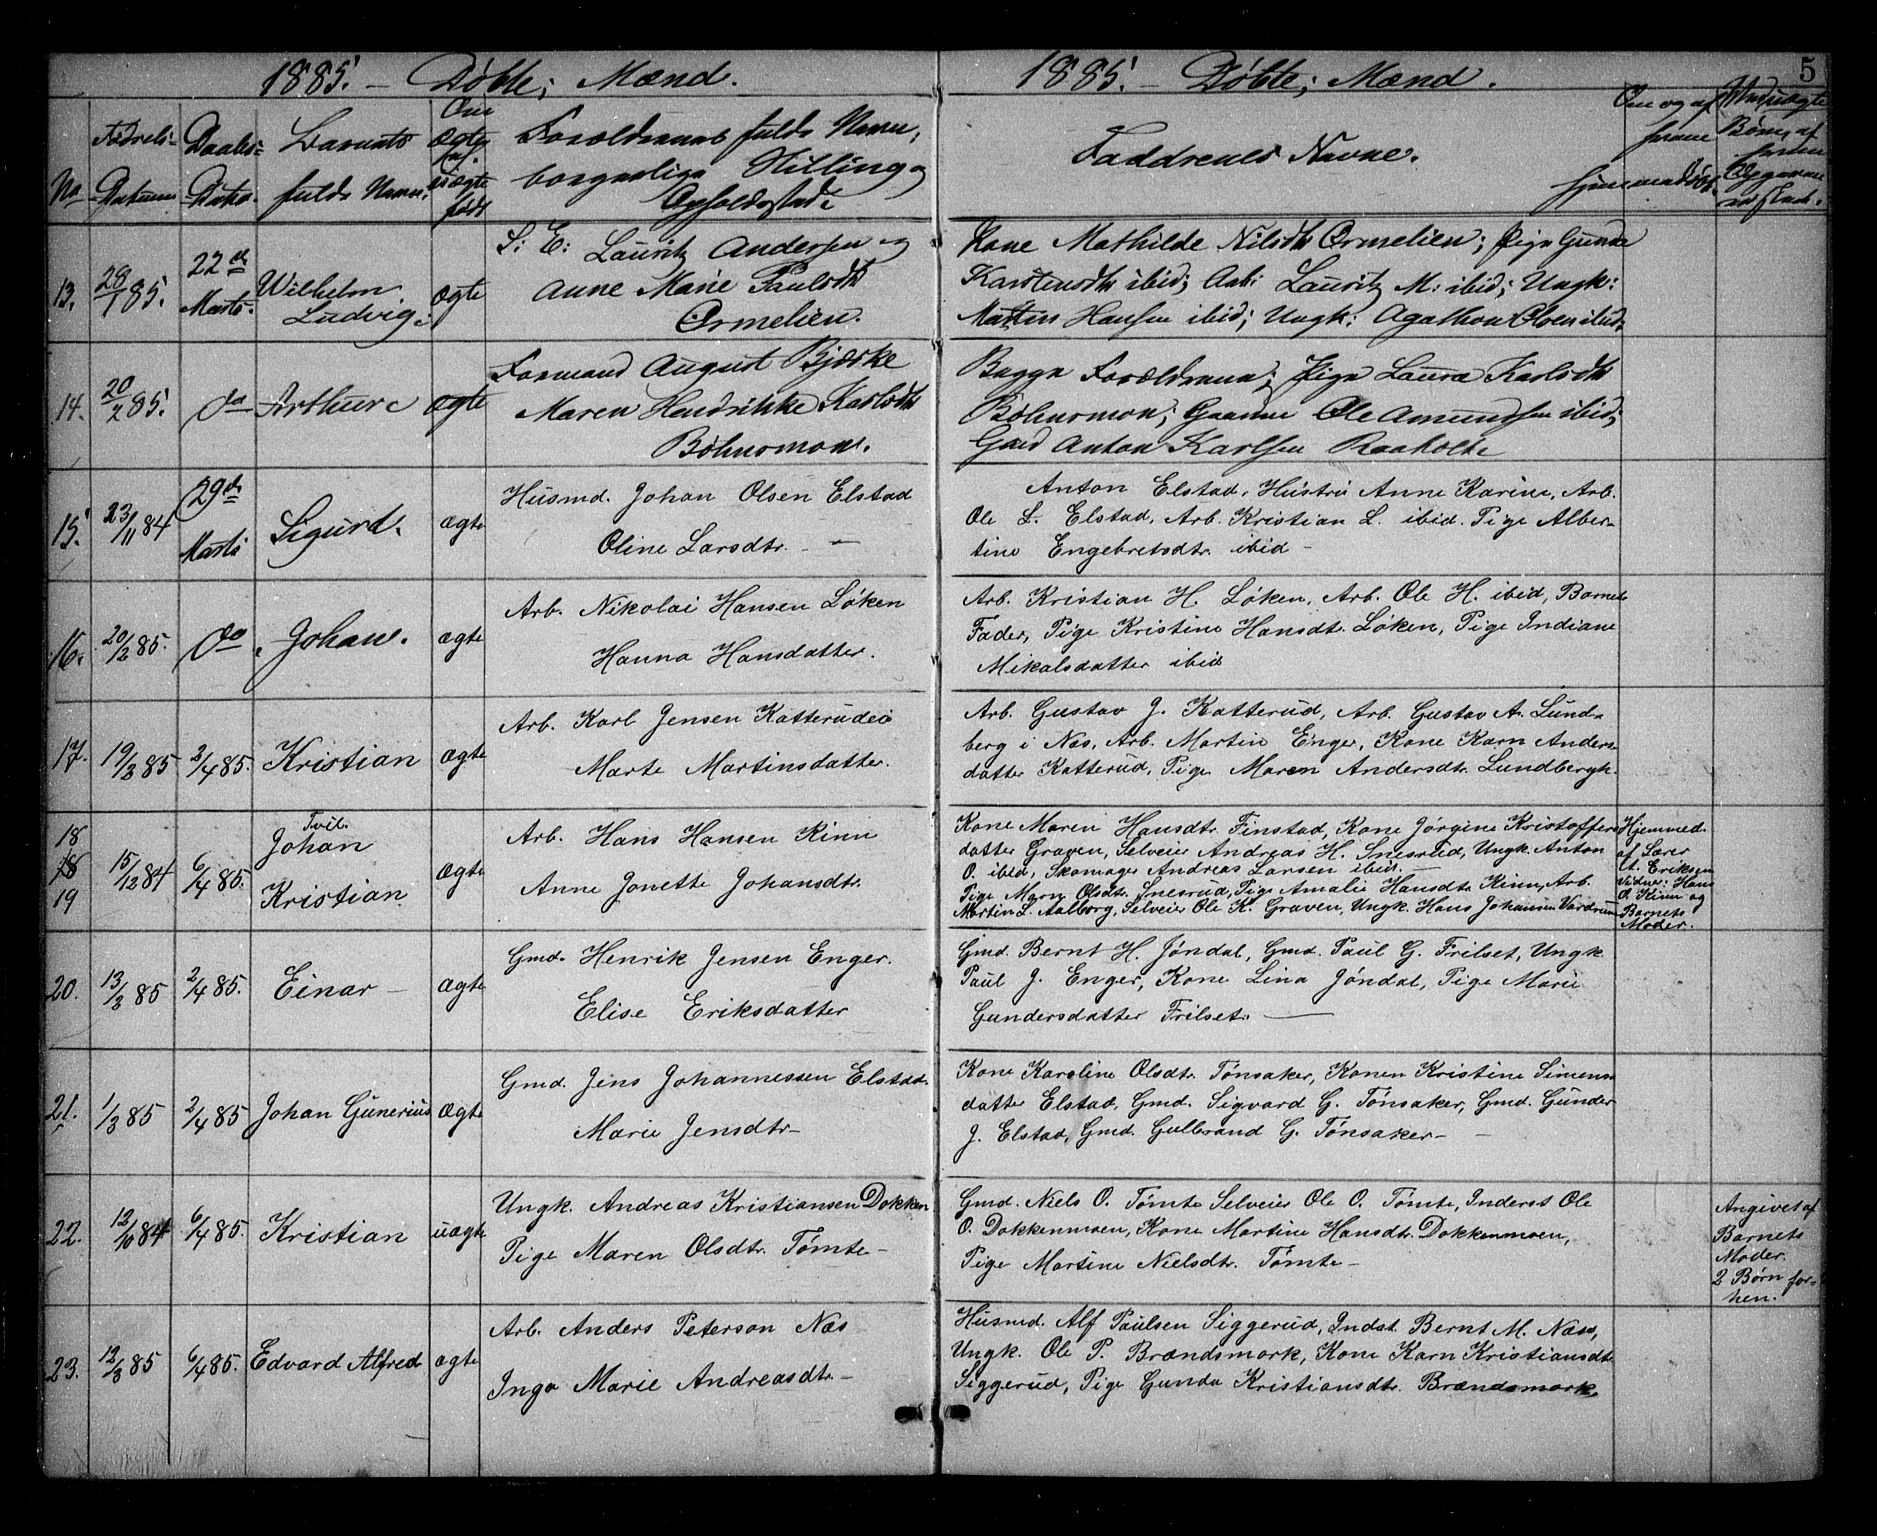 1885. – Døbte; Mænd.
1885. – Døbte; Mænd.
5
No
Fødsels-
Datum
Daabs-
Dato.
Barnets
fulde Navn.
Om
Ægte
uægte
født
Forældrenes fulde Navn,
borgerlige Stilling og
Opholdssted.
Faddrenes Navne.
Om og af
hvem
hjemmedøbt.
Børn, af
hvem
Opgaven
13.
28/1 85.
22de
Marts.
Wilhelm
Ludvig.
ægte
S: E: Lauritz Andersen og
Anne Marie Paulsdtr
Ormelien.
Kone Mathilde Nilsdtr Ormelien; Pige Gunda
Karstensdtr ibid; Arb: Lauritz M: ibid; Ungk:
Martin Hansen ibid; Ungk: Agathon Olsen ibid.
14.
20/2 85.
do
Arthur
ægte
Formand August Bjerke
Maren Hendrikke Karlsdtr
Bøhnsmoen.
Begge Forældrene; Pige Laura Karlsdtr
Bøhnsmoen; Gaardm Ole Amundsen ibid;
Gaard Anton Karlsen Raaholt
15.
23/11 84
29de
Marts
Sigurd.
ægte
Husmd. Johan Olsen Elstad
Oline Larsdtr. —
Anton Elstad, Hustru Anne Karine, Arb.
Ole L. Elstad, Arb. Kristian L. ibid. Pige Alber-
tine Engebretsdtr. ibid –
16.
20/2 85.
do
Johan.
ægte
Arb. Nikolai Hansen Løken
Hanna Hansdatter.
Arb. Kristian H. Løken, Arb. Ole H. ibid, Barnets
Fader, Pige Kristine Hansdtr. Løken, Pige Indiane
Mikalsdatter ibid
17.
19/3 85
2/4 85.
Kristian
ægte
Arb. Karl Jensen Katterudei
Marte Martinsdatter.
Arb. Gustav J. Katterud, Arb. Gustav A. Lund-
berg i Næs, Arb. Martin Enger, Kone Karn Anders-
datter Katterud, Pige Maren Andersdtr. Lundbergh.
18
18
19
15/12 84
6/4 85.
Tvil.
Johan
Kristian
ægte
Arb. Hans Hansen Kinn
Anne Jonette Johansdtr.
Kone Maren Hansdtr. Finstad, Kone Jørgine Kristoffers-
datter Graven, Selveier Andreas H. Snesrud, Ungk. Anton
O. ibid, Skomager Andreas Larsen ibid. –
Pige Maren Olsdtr. Snesrud, Pige Amalie Hansdtr. Kinn, Arb.
Martin L. Aalborg, Selveier Ole K. Graven, Ungk. Hans Johansen Vardrum
Hjemmed.
af Lærer
A. Eriksen
Vidner: Hans
O. Kinn og
Barnets
Moder.
20.
13/3 85
2/4 85.
Einar –
ægte
Gmd. Henrik Jensen Enger.
Elise Eriksdatter
Gmd. Bernt H. Jøndal, Gmd. Paul G. Frilset, Ungk
Paul J. Enger, Kone Lina Jøndal, Pige Marie
Gundersdatter Frilset. —
21.
1/3 85
2/4 85
Johan Gunerius
ægte
Gmd. Jens Johannessen Elstad.
Marie Jensdtr–
Kone Karoline Olsdtr. Tønsaker, Konen Kristine Simens-
datter Elstad, Gmd. Sigvard G. Tønsaker, Gmd. Gunder
J. Elstad, Gmd. Gulbrand G. Tønsaker– –
22.
12/10 84
6/4 85.
Kristian
uægte
Ungk. Andreas Kristiansen Dokken
Pige Maren Olsdtr. Tømte –
Gmd. Niels O. Tømte Selveier Ole O. Tømte, Inderst Ole
O. Dokkenmoen, Kone Martine Hansdtr. Dokkenmoen,
Pige Martine Nielsdtr. Tømte –
Angivet af
Barnets
Moder.
2 Børn for-
hen.
23.
12/3 85
6/4 85.
Edvard Alfred
ægte
Arb. Anders Peterson Næs
Inga Marie Andreasdtr. –
Husmd. Alf Paulsen Siggerud, Indst. Bernt M. Næss,
Ungk. Ole P. Brændsmork, Kone Karn Kristiansdtr.
Siggerud, Pige Gunda Kristiansdtr. Brændsmork.